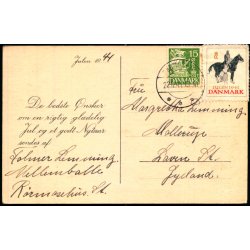 Julen 1944
De bedste Ønsker
om en rigtig glædelig
Jul og et godt Nytaar
sendes af
Holmer Lemming
Mellemballe
Kørmosehus St.
15
DANMARK
JULEN 1944
DANMARK
Frü
Margrethe Lemming
Mollerup
Laven St.
Jylland.